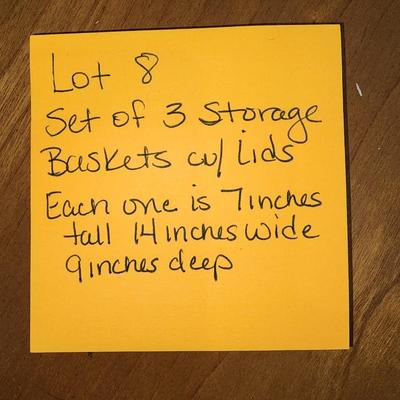 Lot 8
Set of 3 Storage
Baskets w/ Lids
Each one is 7inches
tall 14 inches wide
9inches deep